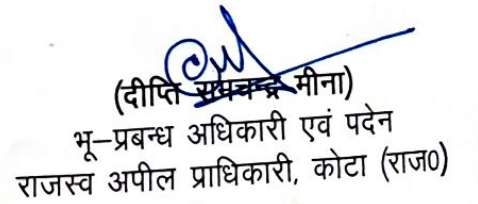 (दीप्ति रामचन्द्र मीना)
भू–प्रबन्ध अधिकारी एवं पदेन
राजस्व अपील प्राधिकारी, कोटा (राज०)